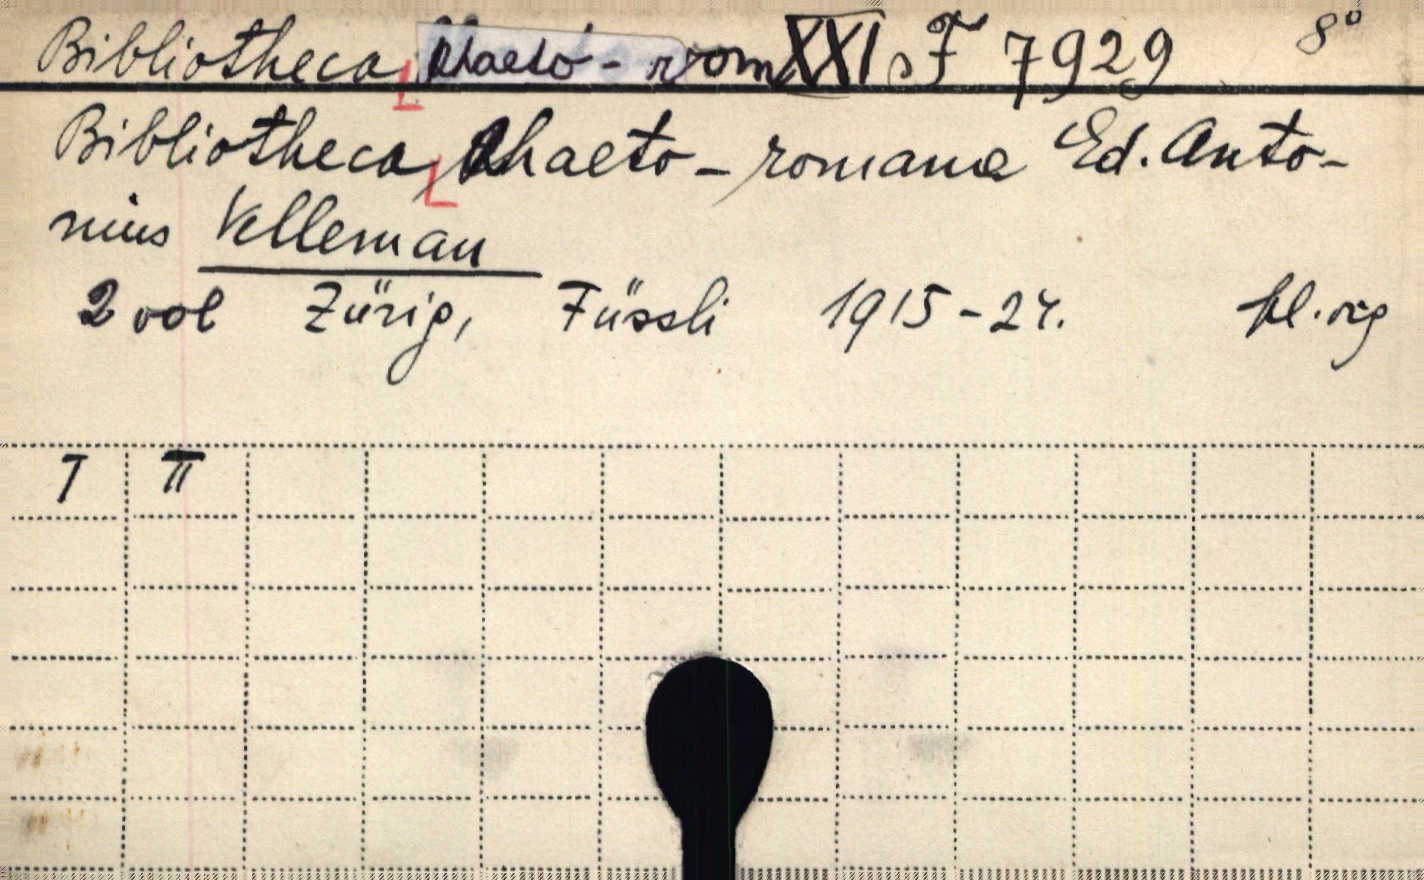 Bibliotheca Rhaeto-rom XXI s F 7929 8°
Bibliotheca Rhaeto-romana Ed. Anto-
nius Velleman
2 vol Zürig, Füssli 1915-24. pl. rig
I II